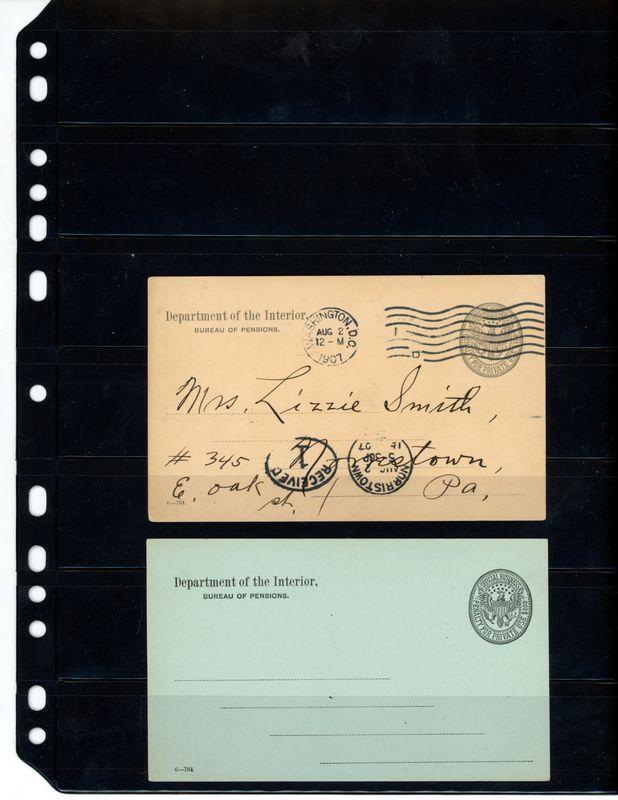 Department of the Interior,
BUREAU OF PENSIONS.
WASHINGTON, D.C.
AUG 2
12-M
1907
Mrs. Lizzie Smith,
# 345 Norristown,
E. oak st. Pa,
RECEIVED
1
NORRISTOWN
AUG 2
07
6—764
Department of the Interior,
BUREAU OF PENSIONS.
OFFICIAL BUSINESS
PENALTY FOR PRIVATE USE $300
6—764